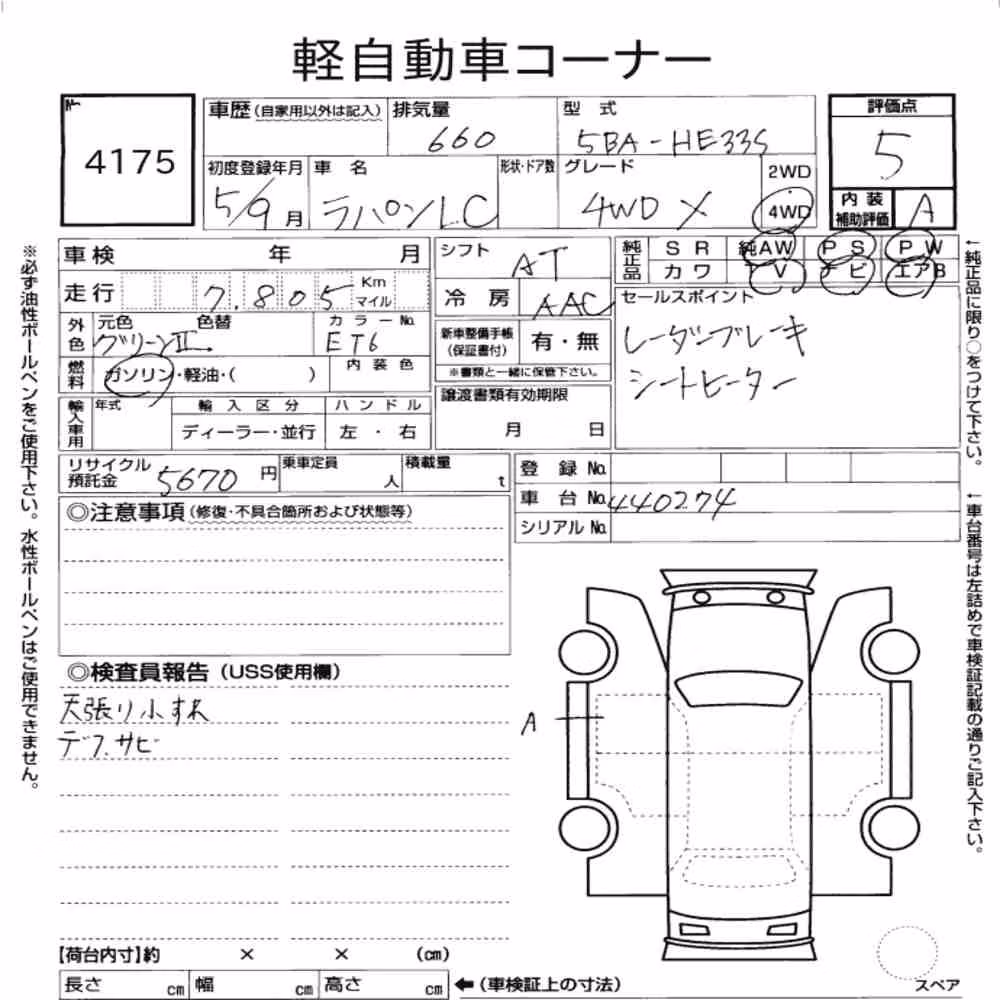 軽自動車コーナー
№
4175
車歴(自家用以外は記入)
排気量
660
型 式
5BA-HE33S
評価点
5
初度登録年月
5/9月
車 名
ラパンLC
形状・ドア数
グレード
4WD X
2WD
4WD
内装
補助評価
A
車検 年 月
シフト
AT
純正品
SR 純AW PS PW
カワ TV ナビ エアB
走行 7.805 Km マイル
冷房
AAC
セールスポイント
レーダーブレーキ
シートヒーター
外色
元色 色替
グリーンⅡ
カラーNo.
ET6
新車整備手帳
(保証書付)
有・無
※書類と一緒に保管下さい。
燃料
ガソリン・軽油・( )
内装色
輸入車用
年式
輸入区分
ハンドル
ディーラー・並行
左・右
譲渡書類有効期限
月 日
リサイクル
預託金
5670円
乗車定員
人
積載量
t
登録No.
車台No.
440274
シリアルNo.
◎注意事項(修復・不具合箇所および状態等)
◎検査員報告(USS使用欄)
天張り小すれ
デフ.サビ
A
【荷台内寸】約 × × (cm)
長さ cm 幅 cm 高さ cm ←(車検証上の寸法)
スペア
※必ず油性ボールペンをご使用下さい。水性ボールペンはご使用できません。
←純正品に限り○をつけて下さい。
←車台番号は左詰めで車検証記載の通りご記入下さい。